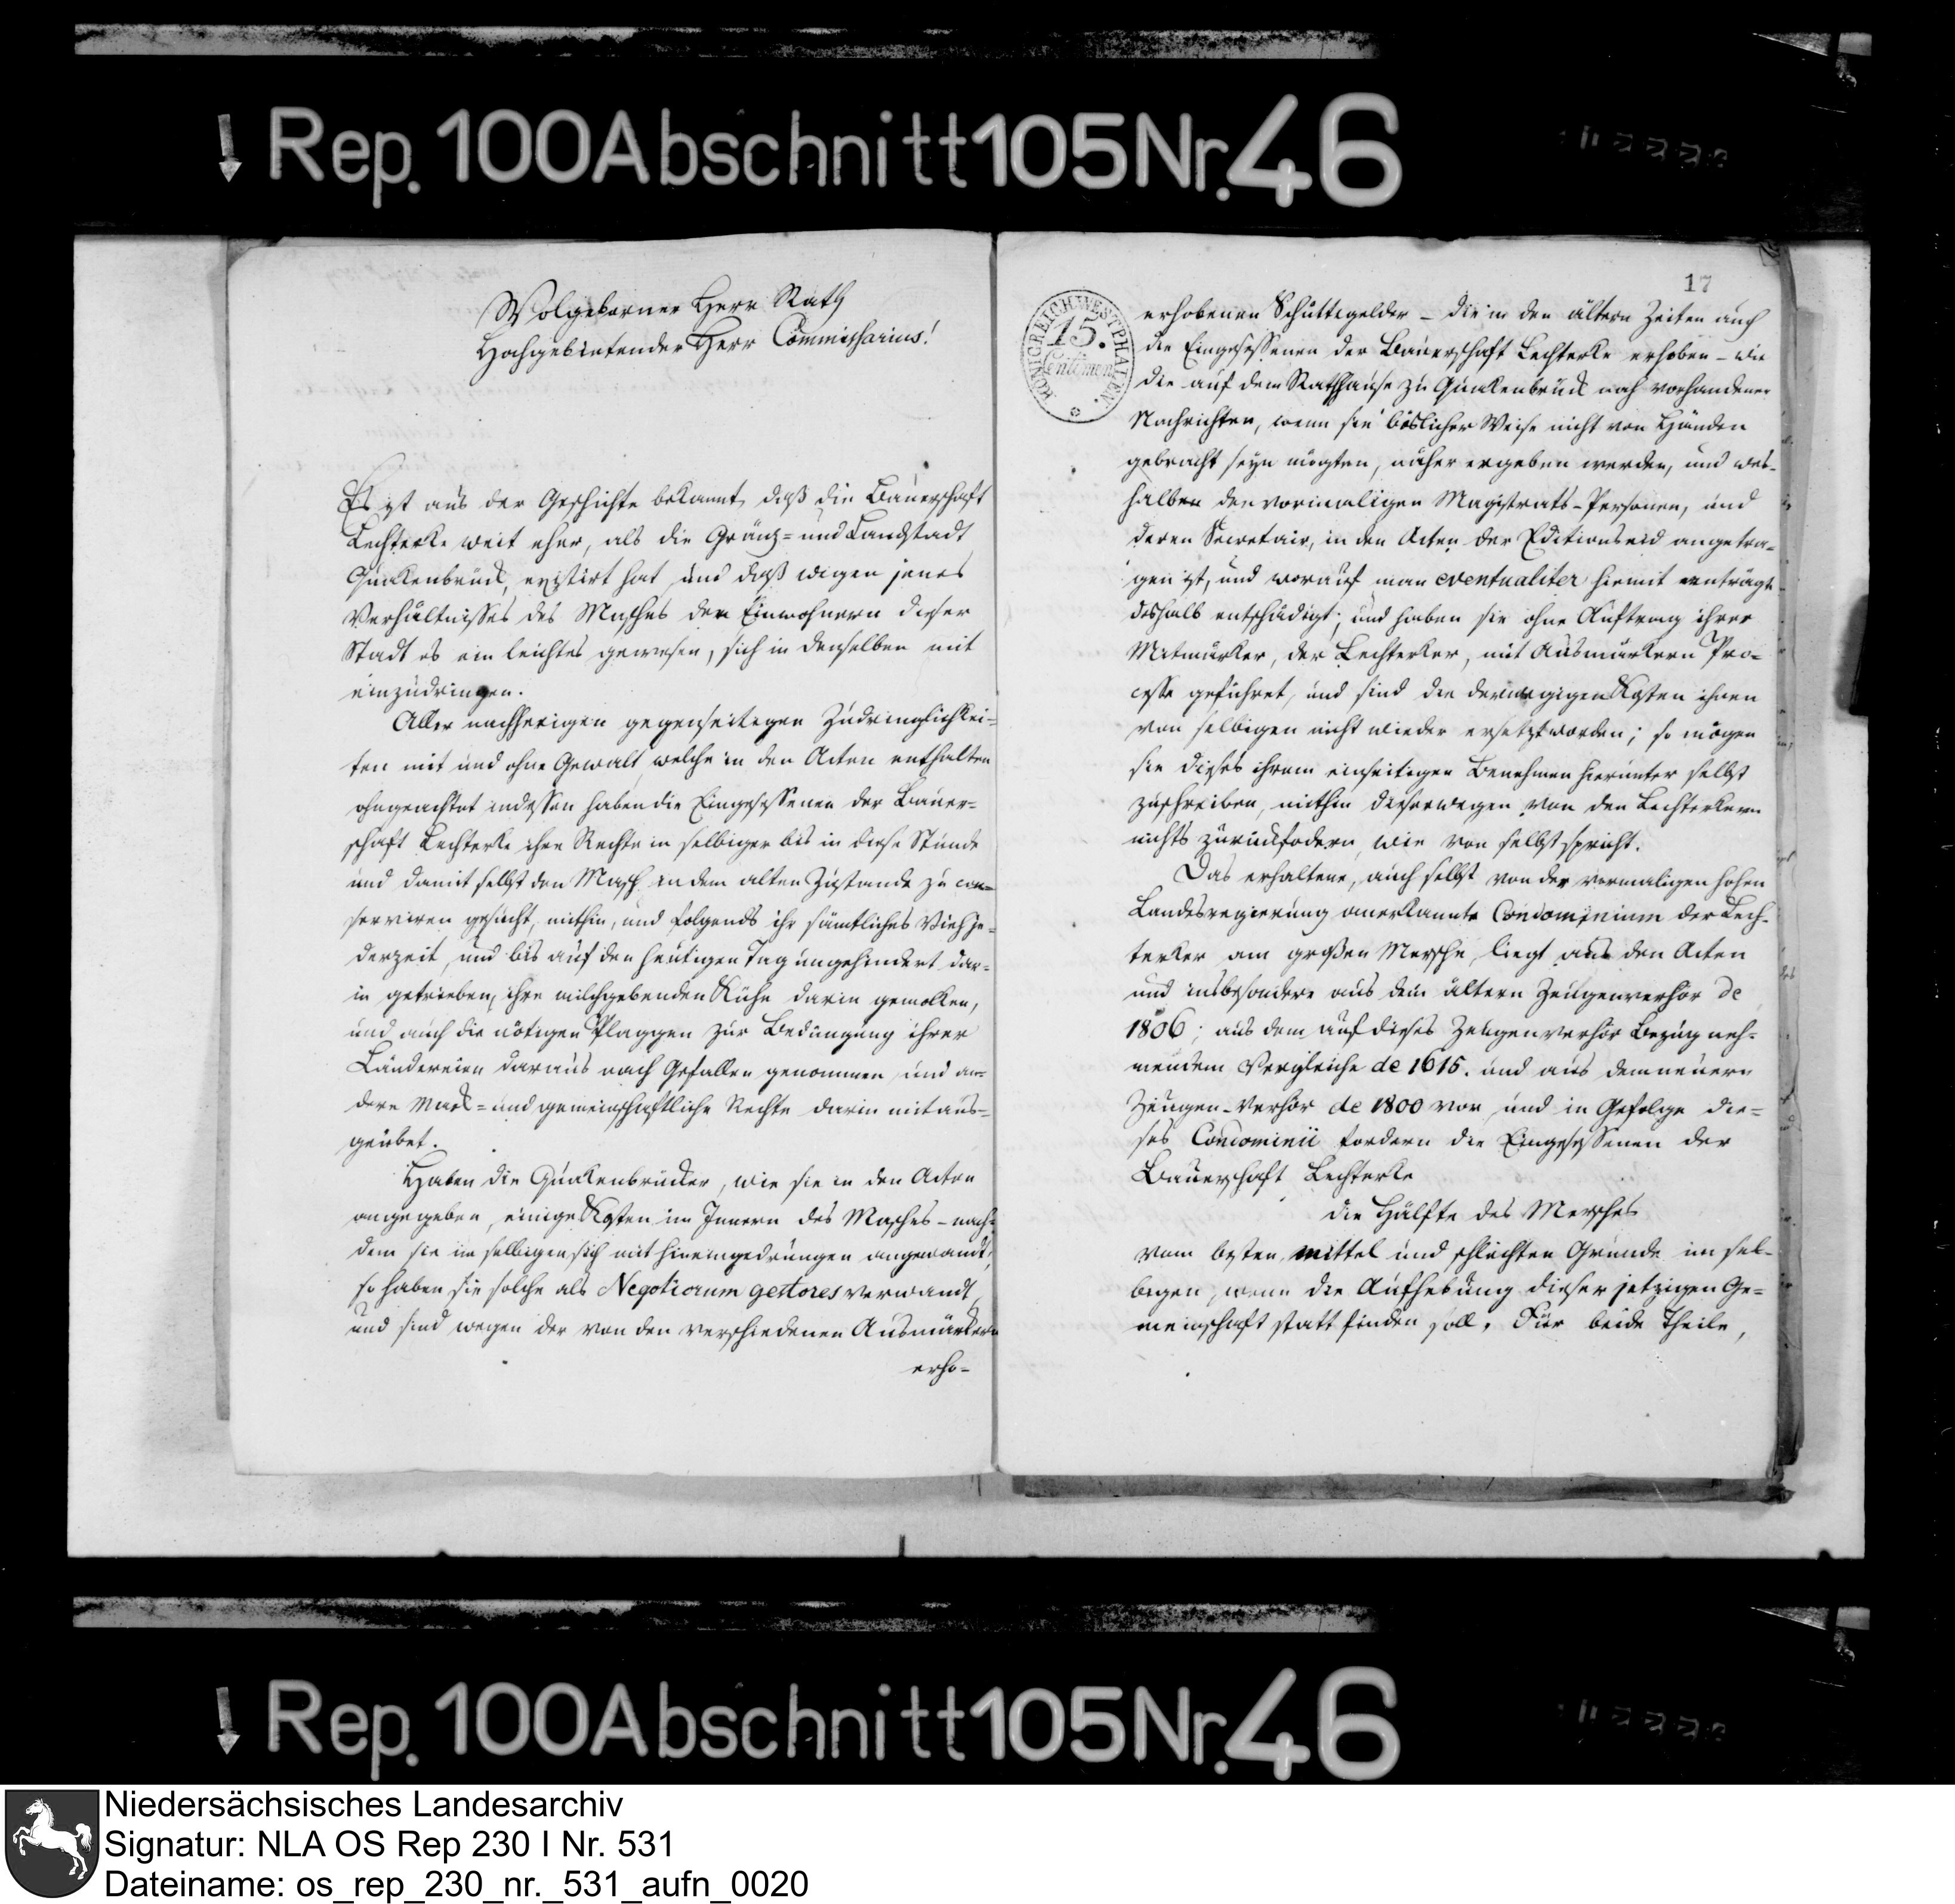 Rep. 100 Abschnitt 105 Nr. 46
Wolgeborner Herr Rath
Hochgebietender Herr Commissarius!
Es ist aus der Geschichte bekannt, daß die Bauerschaft
Lechterke weit eher, als die Gränz- und Landstadt
Quakenbrück, existirt hat, und daß wegen jenes
Verhältnisses des Masches den Einwohnern dieser
Stadt es ein leichtes gewesen, sich in denselben mit
einzudringen.
Aller nachherigen gegenseitigen Zudringlichkei-
ten mit und ohne Gewalt welche in den Acten enthalten
ohngeachtet indessen haben die Eingesessenen der Bauer-
schaft Lechterke ihre Rechte in selbiger bis in diese Stunde
und damit selbst den Masch in dem alten Zustande zu con-
serviren gesucht, mithin, und folgends ihr sämtliches Vieh je-
derzeit, und bis auf den heutigen Tag ungehindert dar-
in getrieben, ihre milchgebenden Kühe darin gemolken,
und auch die nötigen Plaggen zur Bedüngung ihrer
Ländereien daraus nach Gefallen genommen, und an-
dere Mark- und gemeinschaftliche Rechte darin mit aus-
geübet.
Haben die Quakenbrücker, wie sie in den Acten
angegeben, einige Kosten im Innern des Masches - nach-
dem sie in selbigen sich mit hineingedrungen angewandt,
so haben sie solche als Negotiorum gestores verwandt,
und sind wegen der von den verschiedenen Ausmärkern
erho-
17
KÖNIGREICH WESTPHALEN.
15.
Centimen
erhobenen Schüttegelder - die in den ältern Zeiten auch
die Eingesessenen der Bauerschaft Lechterke erhoben - wie
die auf dem Rathhause zu Quakenbrück noch vorhandener
Nachrichten, wenn sie böslicher Weise nicht von Händen
gebracht seyn mögten, näher ergeben werden, und wes-
halben den vormaligen Magistrats-Personen, und
deren Secretair, in den Acten der Editionseid angetra-
gen ist, und worauf man eventualiter hiemit anträgt
deshalb entschädigt; und haben sie ohne Auftrag ihrer
Mitmärker, der Lechterker, mit Ausmärkern Pro-
cesse geführet, und sind die Kosten ihnen
von selbigen nicht wieder ersetzt worden; so mögen
sie dieses ihrem einseitigen Benehmen hierunter selbst
zuschreiben, mithin dieserwegen von den Lechterkern
nichts zurückfodern, wie von selbst spricht.
Das erhaltene, auch selbst von der vormaligen hohen
Landesregierung anerkannte Condominium der Lech-
terker am großen Mersche, liegt aus den Acten
und insbesondere aus dem ältern Zeugenverhör de
1806; aus dem auf dieses Zeugenverhör Bezug neh-
mendem Vergleiche de 1615. und aus dem neuern
Zeugen-Verhör de 1800 vor, und in Gefolge die-
ses Condominii fordern die Eingesessenen der
Bauerschaft Lechterke
die Hälfte des Mersches
vom besten, mittel und schlechten Grunde im sel-
bigen, wenn die Aufhebung dieser jetzigen Ge-
meinschaft statt finden soll. Für beide Theile,
Rep. 100 Abschnitt 105 Nr. 46
Niedersächsisches Landesarchiv
Signatur: NLA OS Rep 230 I Nr. 531
Dateiname: os_rep_230_nr._531_aufn_0020